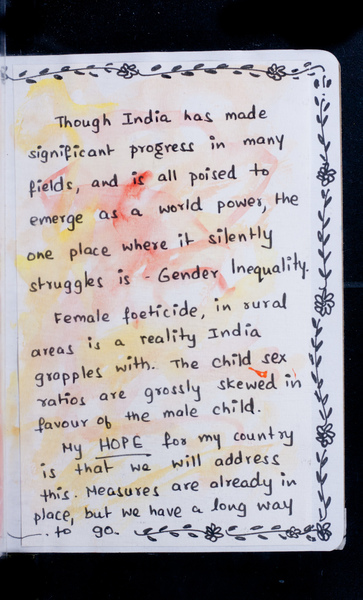 Though India has made
significant progress in many
fields, and is all poised to
emerge as a world power, the
one place where it silently
struggles is - Gender Inequality.
Female foeticide, in rural
areas is a reality India
grapples with. The child sex
ratios are grossly skewed in
favour of the male child.
My HOPE for my country
is that we will address
this. Measures are already in
place, but we have a long way
to go.